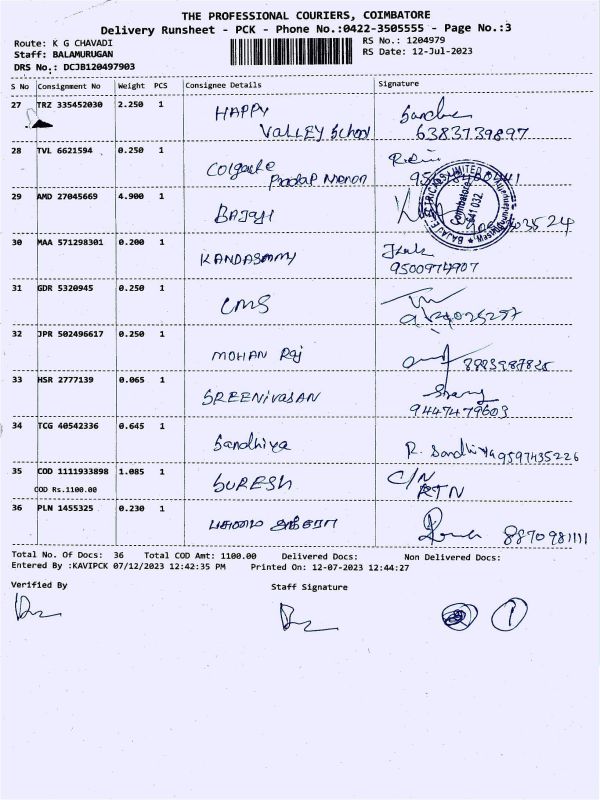 THE PROFESSIONAL COURIERS, COIMBATORE
Delivery Runsheet - PCK - Phone No.:0422-3505555 - Page No.:3
Route: K G CHAVADI
RS No.: 1204979
Staff: BALAMURUGAN
RS Date: 12-Jul-2023
DRS No.: DCJB120497903
S No Consignment No Weight PCS Consignee Details Signature
27 TRZ 335452030 2.250 1 HAPPY VALLEY School 6383739897
28 TVL 6621594 0.250 1 Colgate Pradap Menon
29 AMD 27045669 4.900 1 BAJAJI
BAJAJ ELECTRICALS LIMITED
Coimbatore
641 032
30 MAA 571298301 0.200 1 KANDASAMY 9500974907
31 GDR 5320945 0.250 1 CMS
32 JPR 502496617 0.250 1 MOHAN Raj
33 HSR 2777139 0.065 1 SREENIVASAN 9447479603
34 TCG 40542336 0.645 1 Sandhiya R. Sandhiya 9597435226
35 COD 1111933898 1.085 1 SURESH C/N RTN
COD Rs.1100.00
36 PLN 1455325 0.230 1 8870981111
Total No. Of Docs: 36 Total COD Amt: 1100.00 Delivered Docs: Non Delivered Docs:
Entered By :KAVIPCK 07/12/2023 12:42:35 PM Printed On: 12-07-2023 12:44:27
Verified By Staff Signature
1